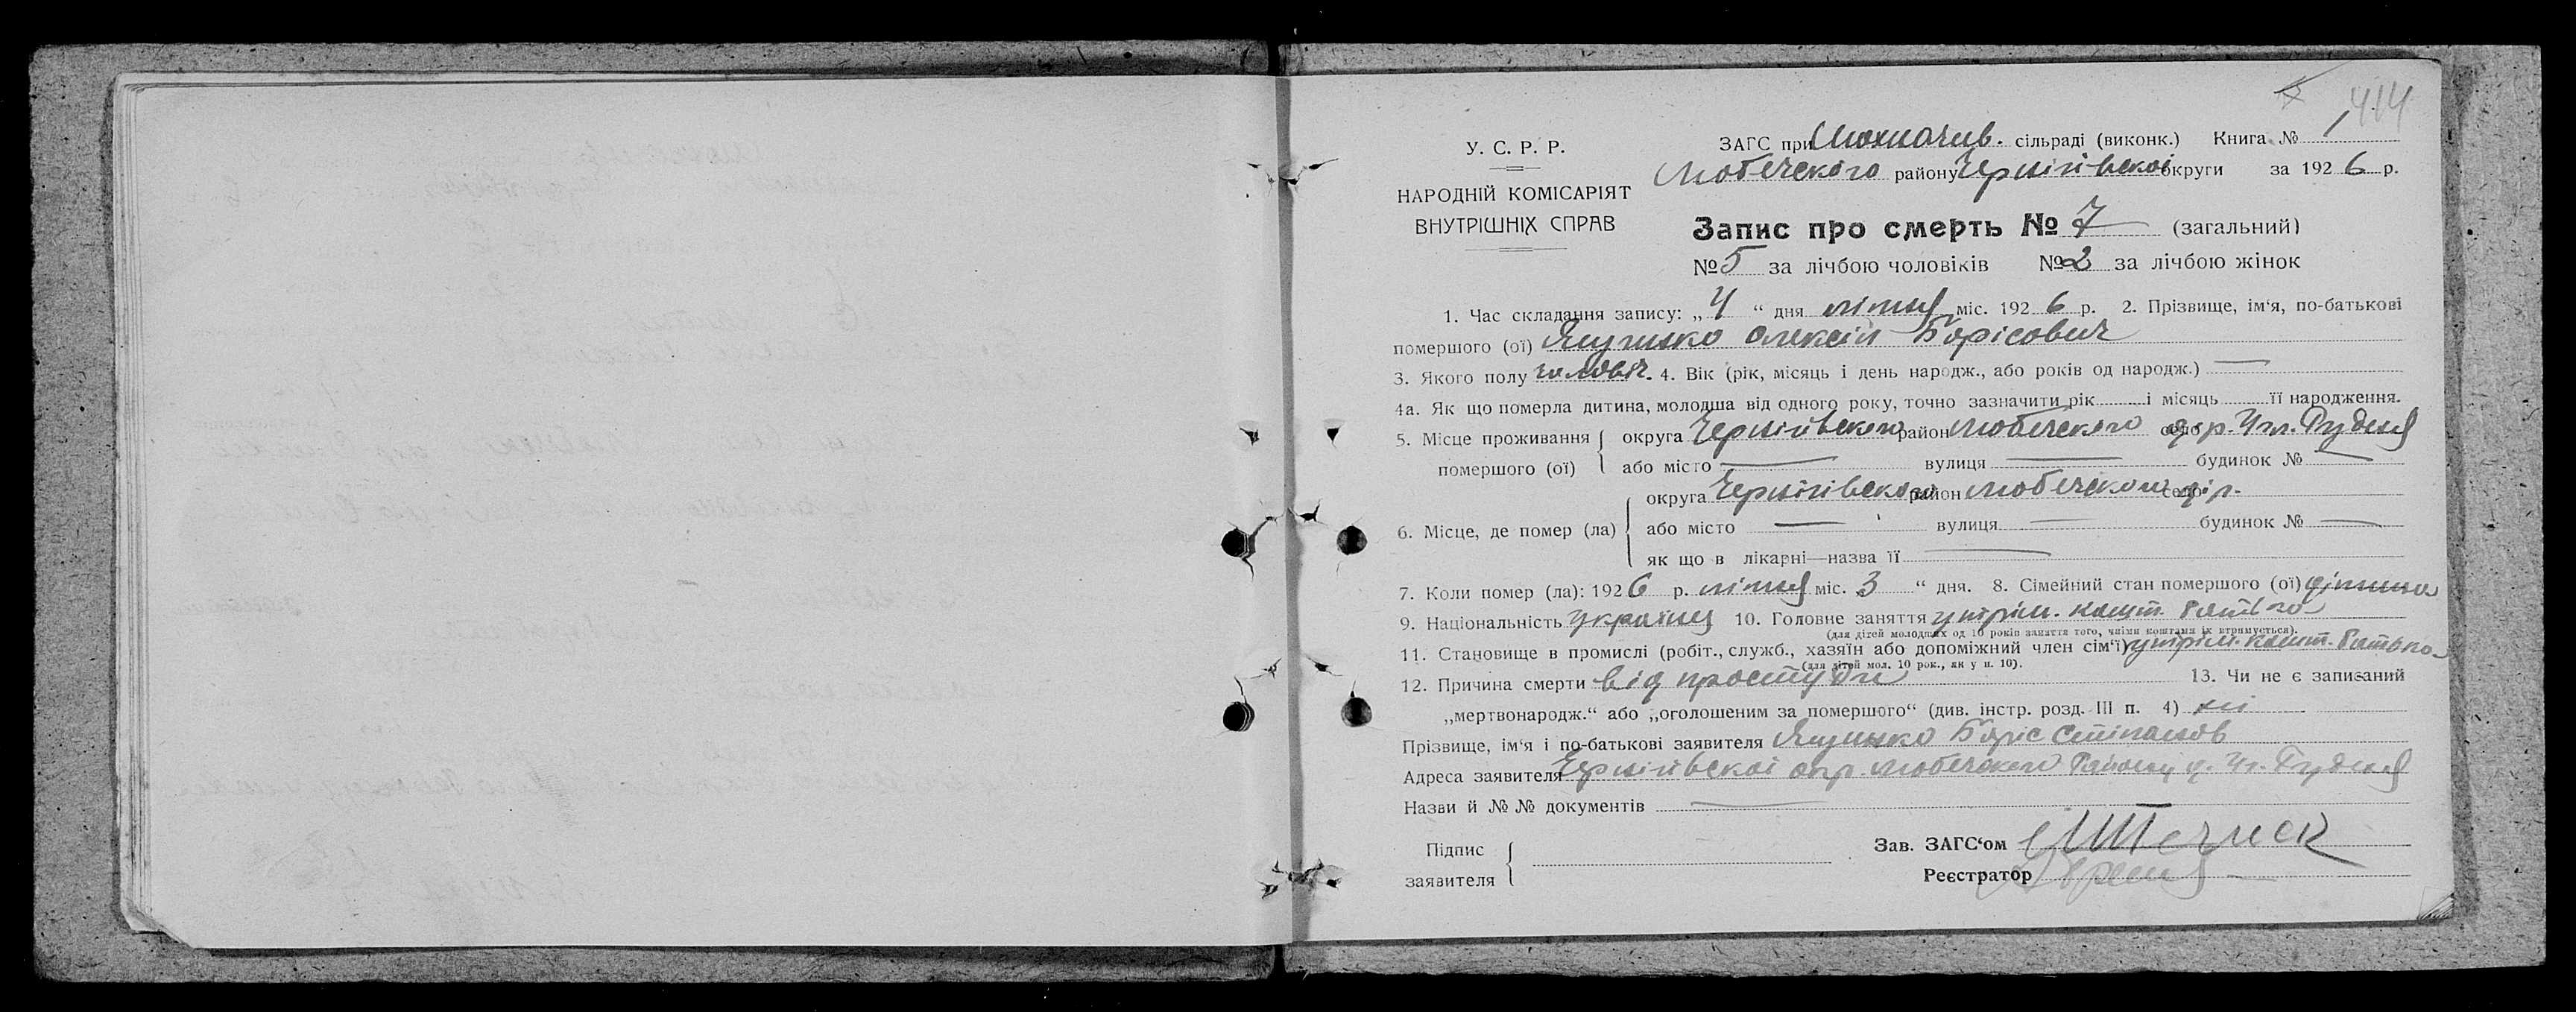 414
У. С. Р. Р.
НАРОДНІЙ КОМІСАРІЯТ
ВНУТРІШНІХ СПРАВ
ЗАГС при Мохначив. сільраді (виконк.) Книга № 1
Любечского району Чернігівскоі округи за 1926 р.
Запис про смерть № 7 (загальний)
№ 5 за лічбою чоловіків № 2 за лічбою жінок
1. Час складання запису: „4“ дня літня міс. 1926 р. 2. Прізвище, ім‘я, по-батькові
помершого (ої) Ящинко Олексій Борісович
3. Якого полу чоловіч. 4. Вік (рік, місяць і день народж., або років од народж.) —
4а. Як що померла дитина, молодша від одного року, точно зазначити рік і місяць її народження.
5. Місце проживання помершого (ої) округа Чернігівского район Любечского село дер. Рудня
або місто — вулиця — будинок № —
6. Місце, де помер (ла) округа Чернігівского район Любечского село
або місто — вулиця — будинок № —
як що в лікарні—назва її —
7. Коли помер (ла): 1926 р. літня міс. 3 “ дня. 8. Сімейний стан помершого (ої) дітина
9. Національність українц 10. Головне заняття утрім. кошт. батько
(для дітей молодших од 10 років заняття того, чиїми коштами їх втримується).
11. Становище в промислі (робіт., служб., хазяїн або допоміжний член сім‘ї) утрім. кошт. батько
(для дітей мол. 10 рок., як у п. 10).
12. Причина смерти від простуди 13. Чи не є записаний
„мертвонародж.“ або „оголошеним за помершого“ (див. інстр. розд. III п. 4) ні
Прізвище, ім‘я і по-батькові заявителя Ящинко Боріс Стіпанов
Адреса заявителя Чернігівскоі окр. Любечского Району д. Рудня
Назви й №№ документів —
Підпис заявителя
Зав. ЗАГС‘ом
Реєстратор